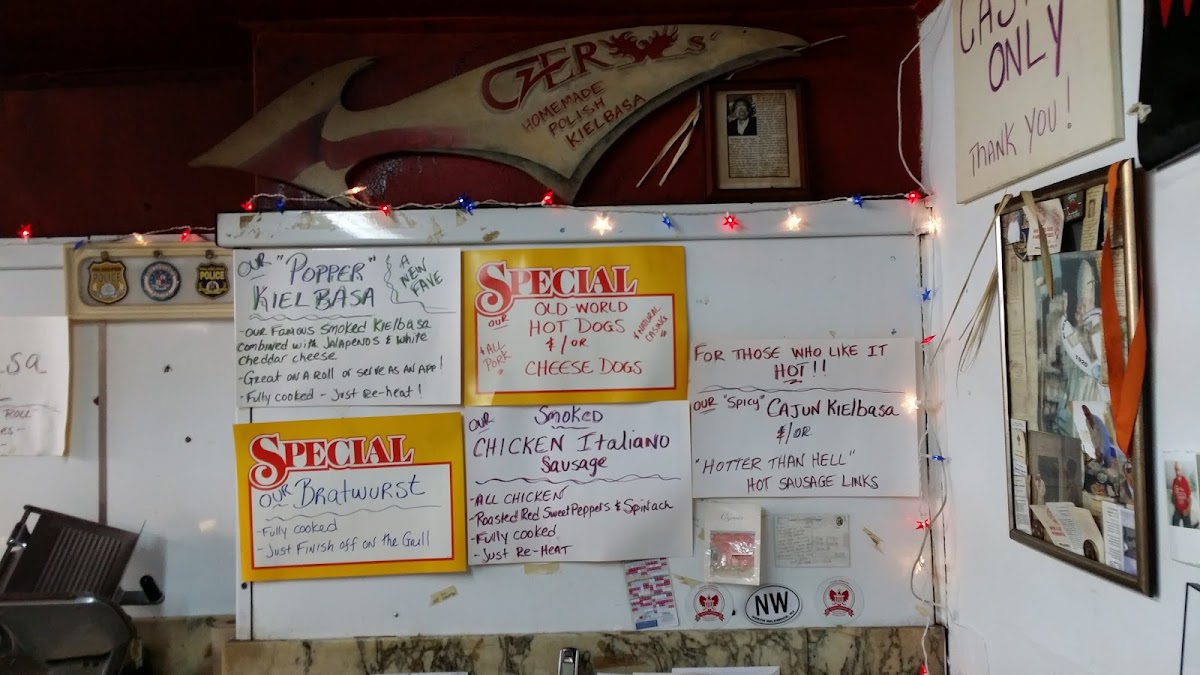 CZERW'S
HOMEMADE
POLISH
KIELBASA
CASH
ONLY
THANK YOU!
POLICE
POLICE
OUR "POPPER"
KIELBASA
A
NEW
FAVE
-OUR FAMOUS SMOKED KIELBASA
COMBINED WITH JALAPENOS & WHITE
CHEDDAR CHEESE
-Great ON A ROLL or SERVE AS AN APP!
-Fully cooked - Just Re-heat!
SPECIAL
OUR
OLD-WORLD
HOT DOGS
&/OR
CHEESE DOGS
* ALL
PORK *
* NATURAL
CASING *
FOR THOSE WHO LIKE IT
HOT!!
OUR "SPICY" CAJUN KIELBASA
&/OR
"HOTTER THAN HELL"
HOT SAUSAGE LINKS
SPECIAL
OUR BRATWURST
-Fully cooked
-Just Finish off on the Grill
OUR SMOKED
CHICKEN ITALIANO
SAUSAGE
-ALL CHICKEN
-Roasted Red Sweet Peppers & Spinach
-Fully cooked
-Just Re-Heat
sa
Roll
NW